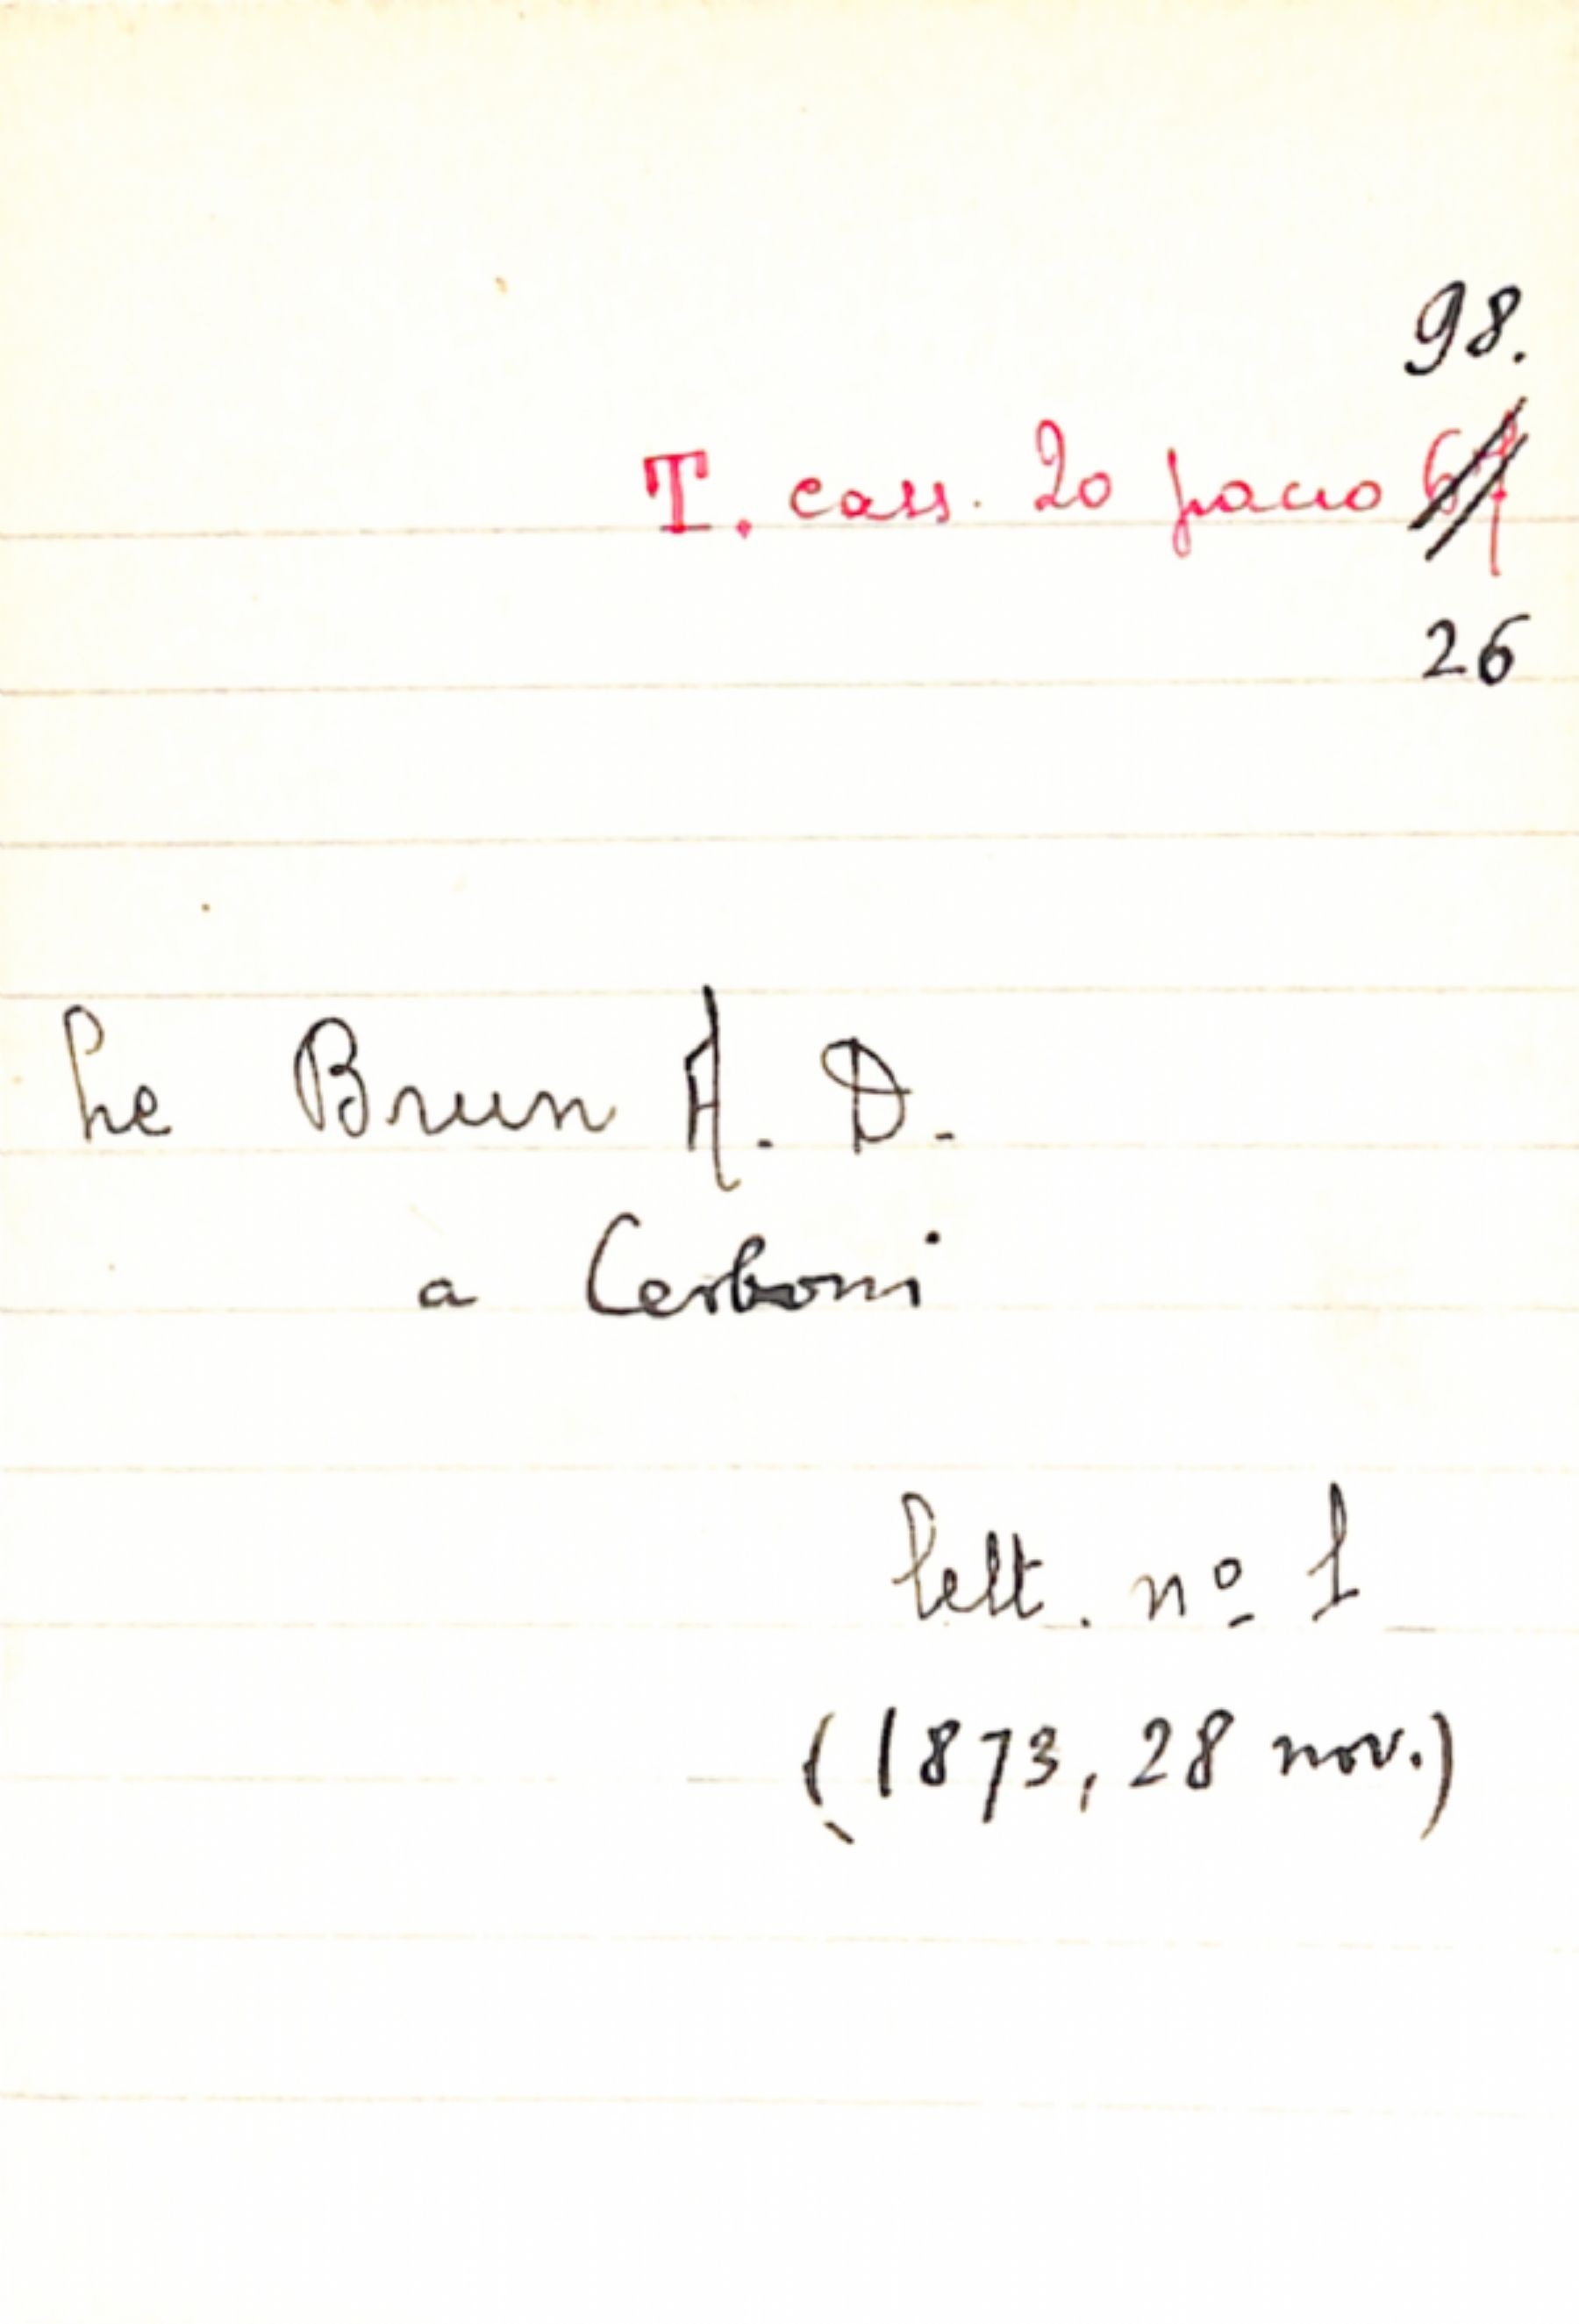 98.
T. cass. 20 pacco
26
Le Brun A. D.
a Cerboni
lett. nº 1
(1873, 28 nov.)